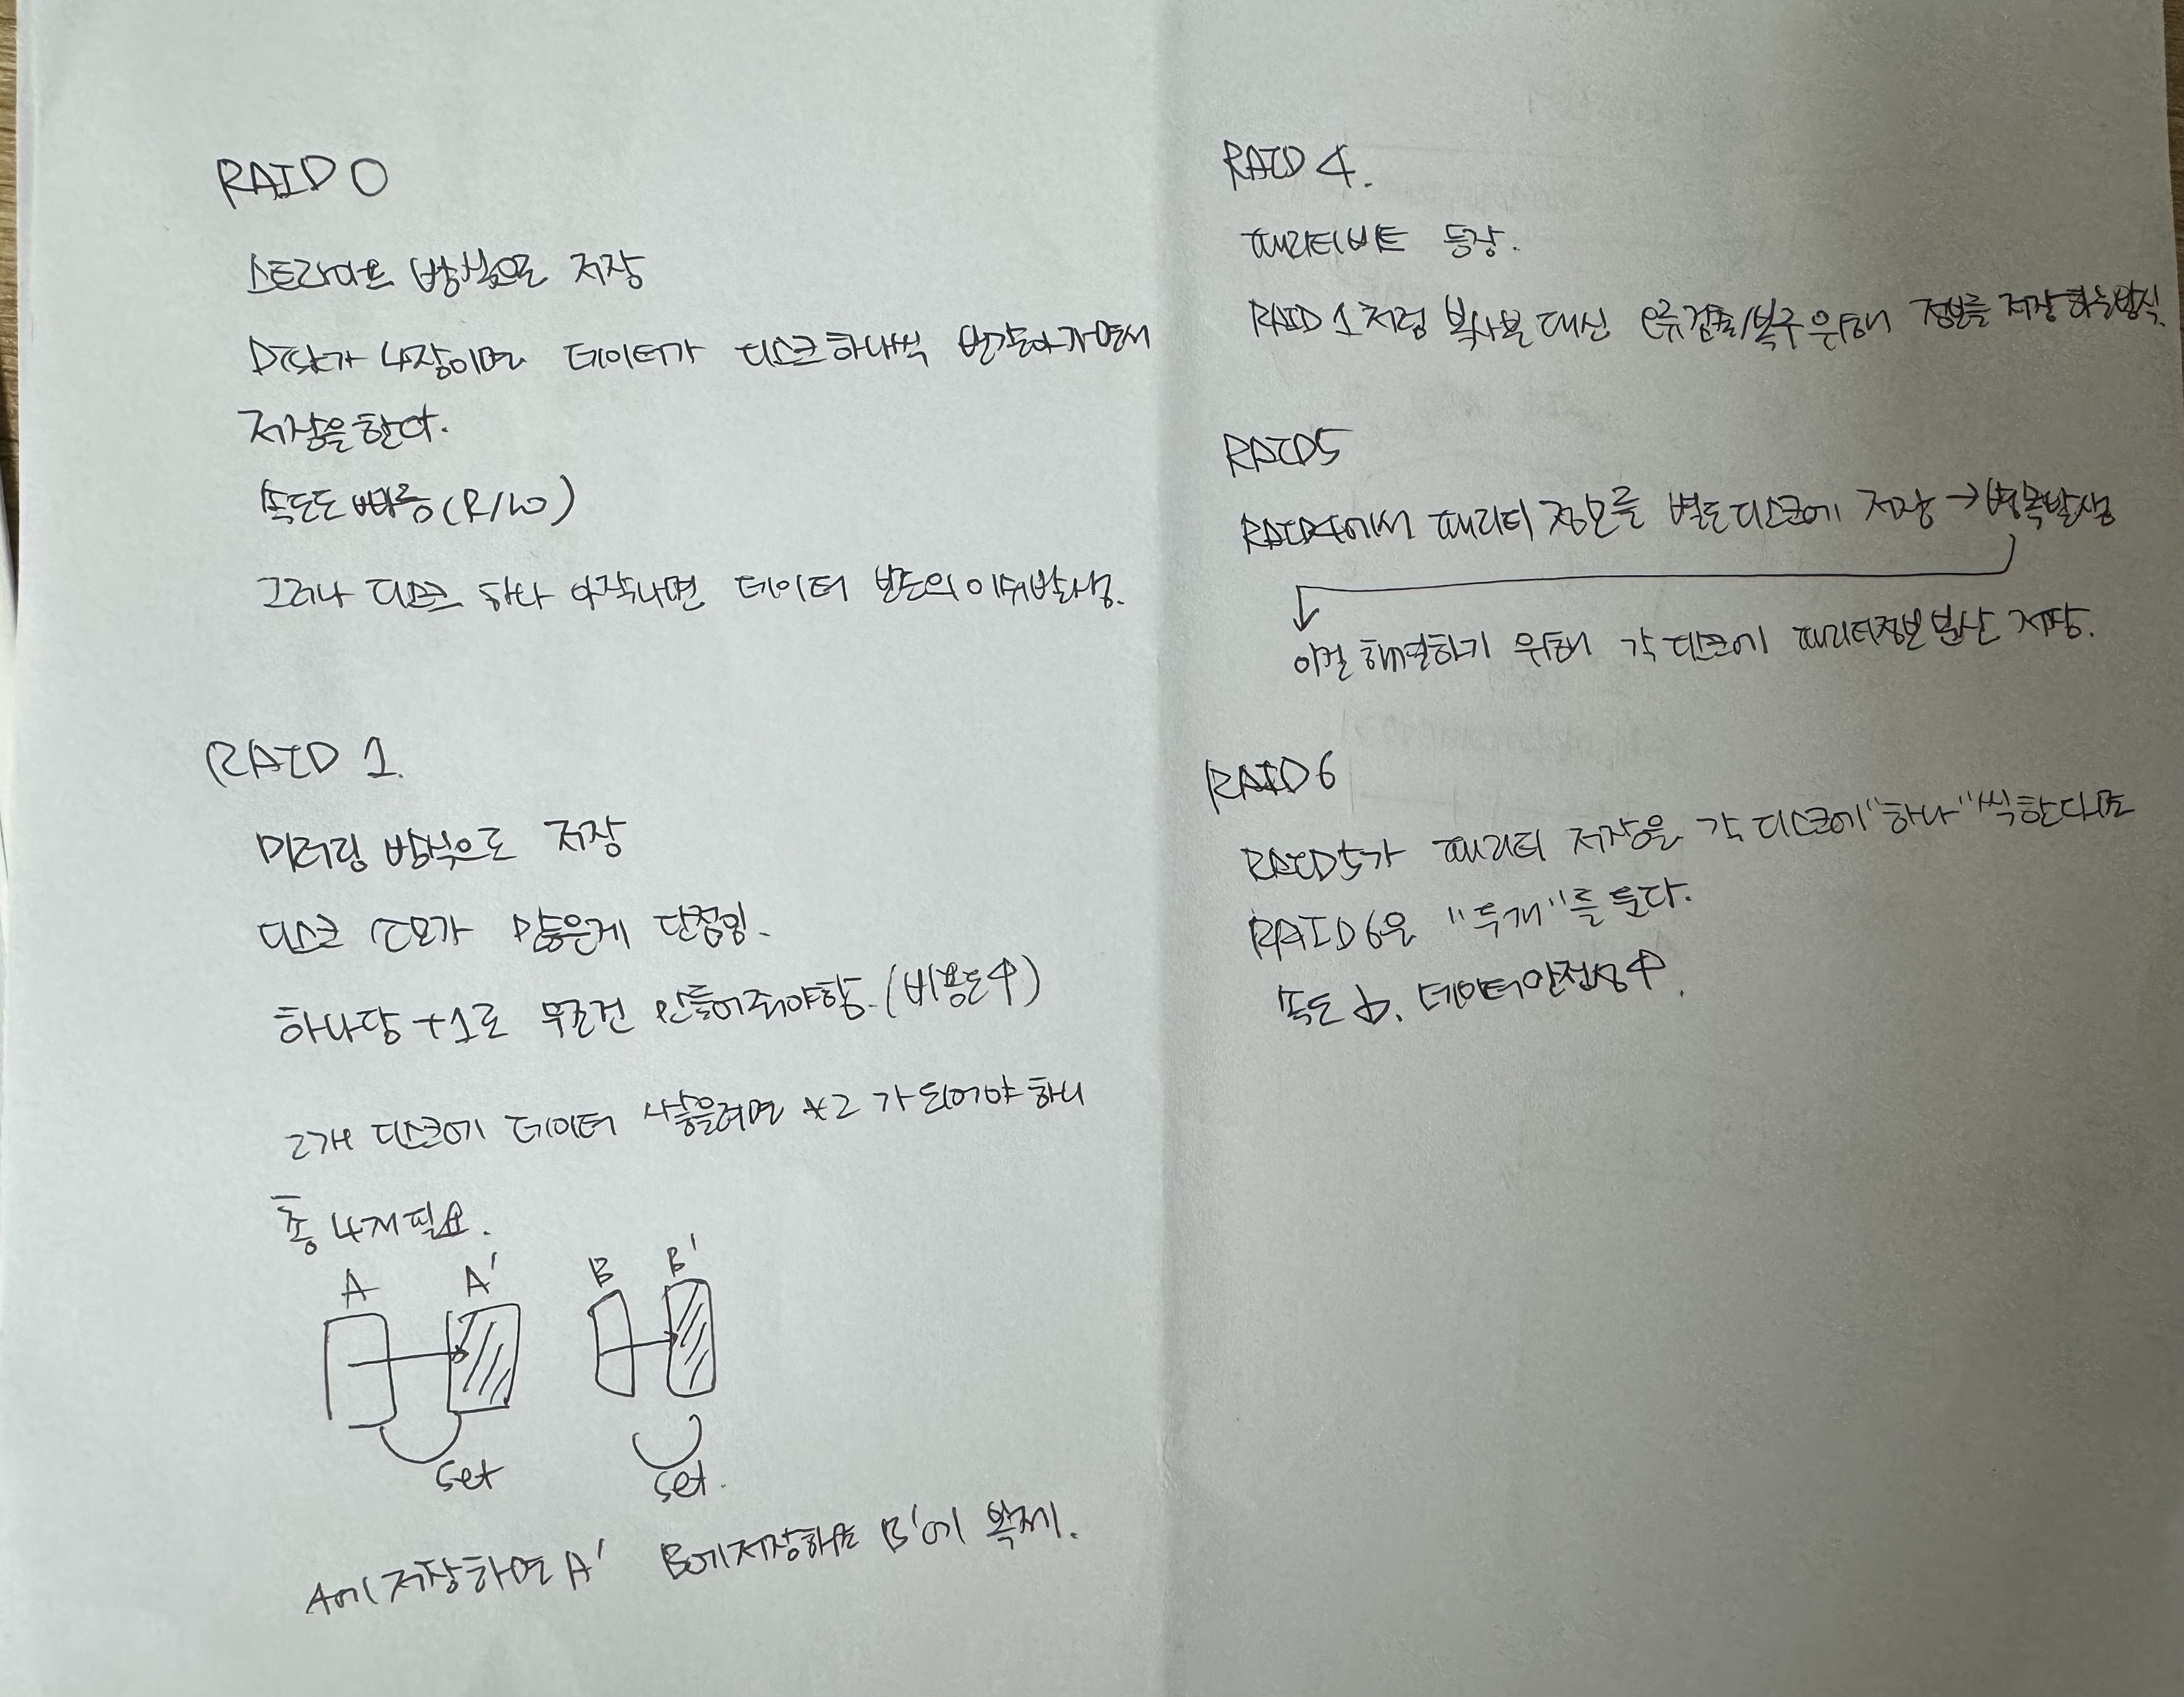 RAID 0
스트라이프 방식으로 저장
Disk가 4장이면 데이터가 디스크하나씩 번갈아가면서
저장을한다.
속도도 빠름(R/W)
그러나 디스크 하나 아작나면 데이터 빈도의 이슈발생.
RAID 1.
미러링 방식으로 저장
디스크 소모가 많은게 단점임.
하나당 +1로 무조건 만들어줘야함.(비용도↑)
2개 디스크에 데이터 쌓을려면 *2 가 되어야 하니
총 4개 필요.
A A' B B'
set set.
A에 저장하면 A' B에저장하면 B'에 복제.
RAID 4.
패리티비트 등장.
RAID 1처럼 복사본 대신 오류검출/복구 위해 정보를 저장하는방식.
RAID5
RAID4에서 패리티 정보를 별도디스크에 저장 → 병목발생
이걸 해결하기 위해 각 디스크에 패리티정보 분산 저장.
RAID6
RAID5가 패리티 저장을 각 디스크에 "하나"씩한다면
RAID6은 "두개"를 둔다.
속도 ↓. 데이터안정성↑.